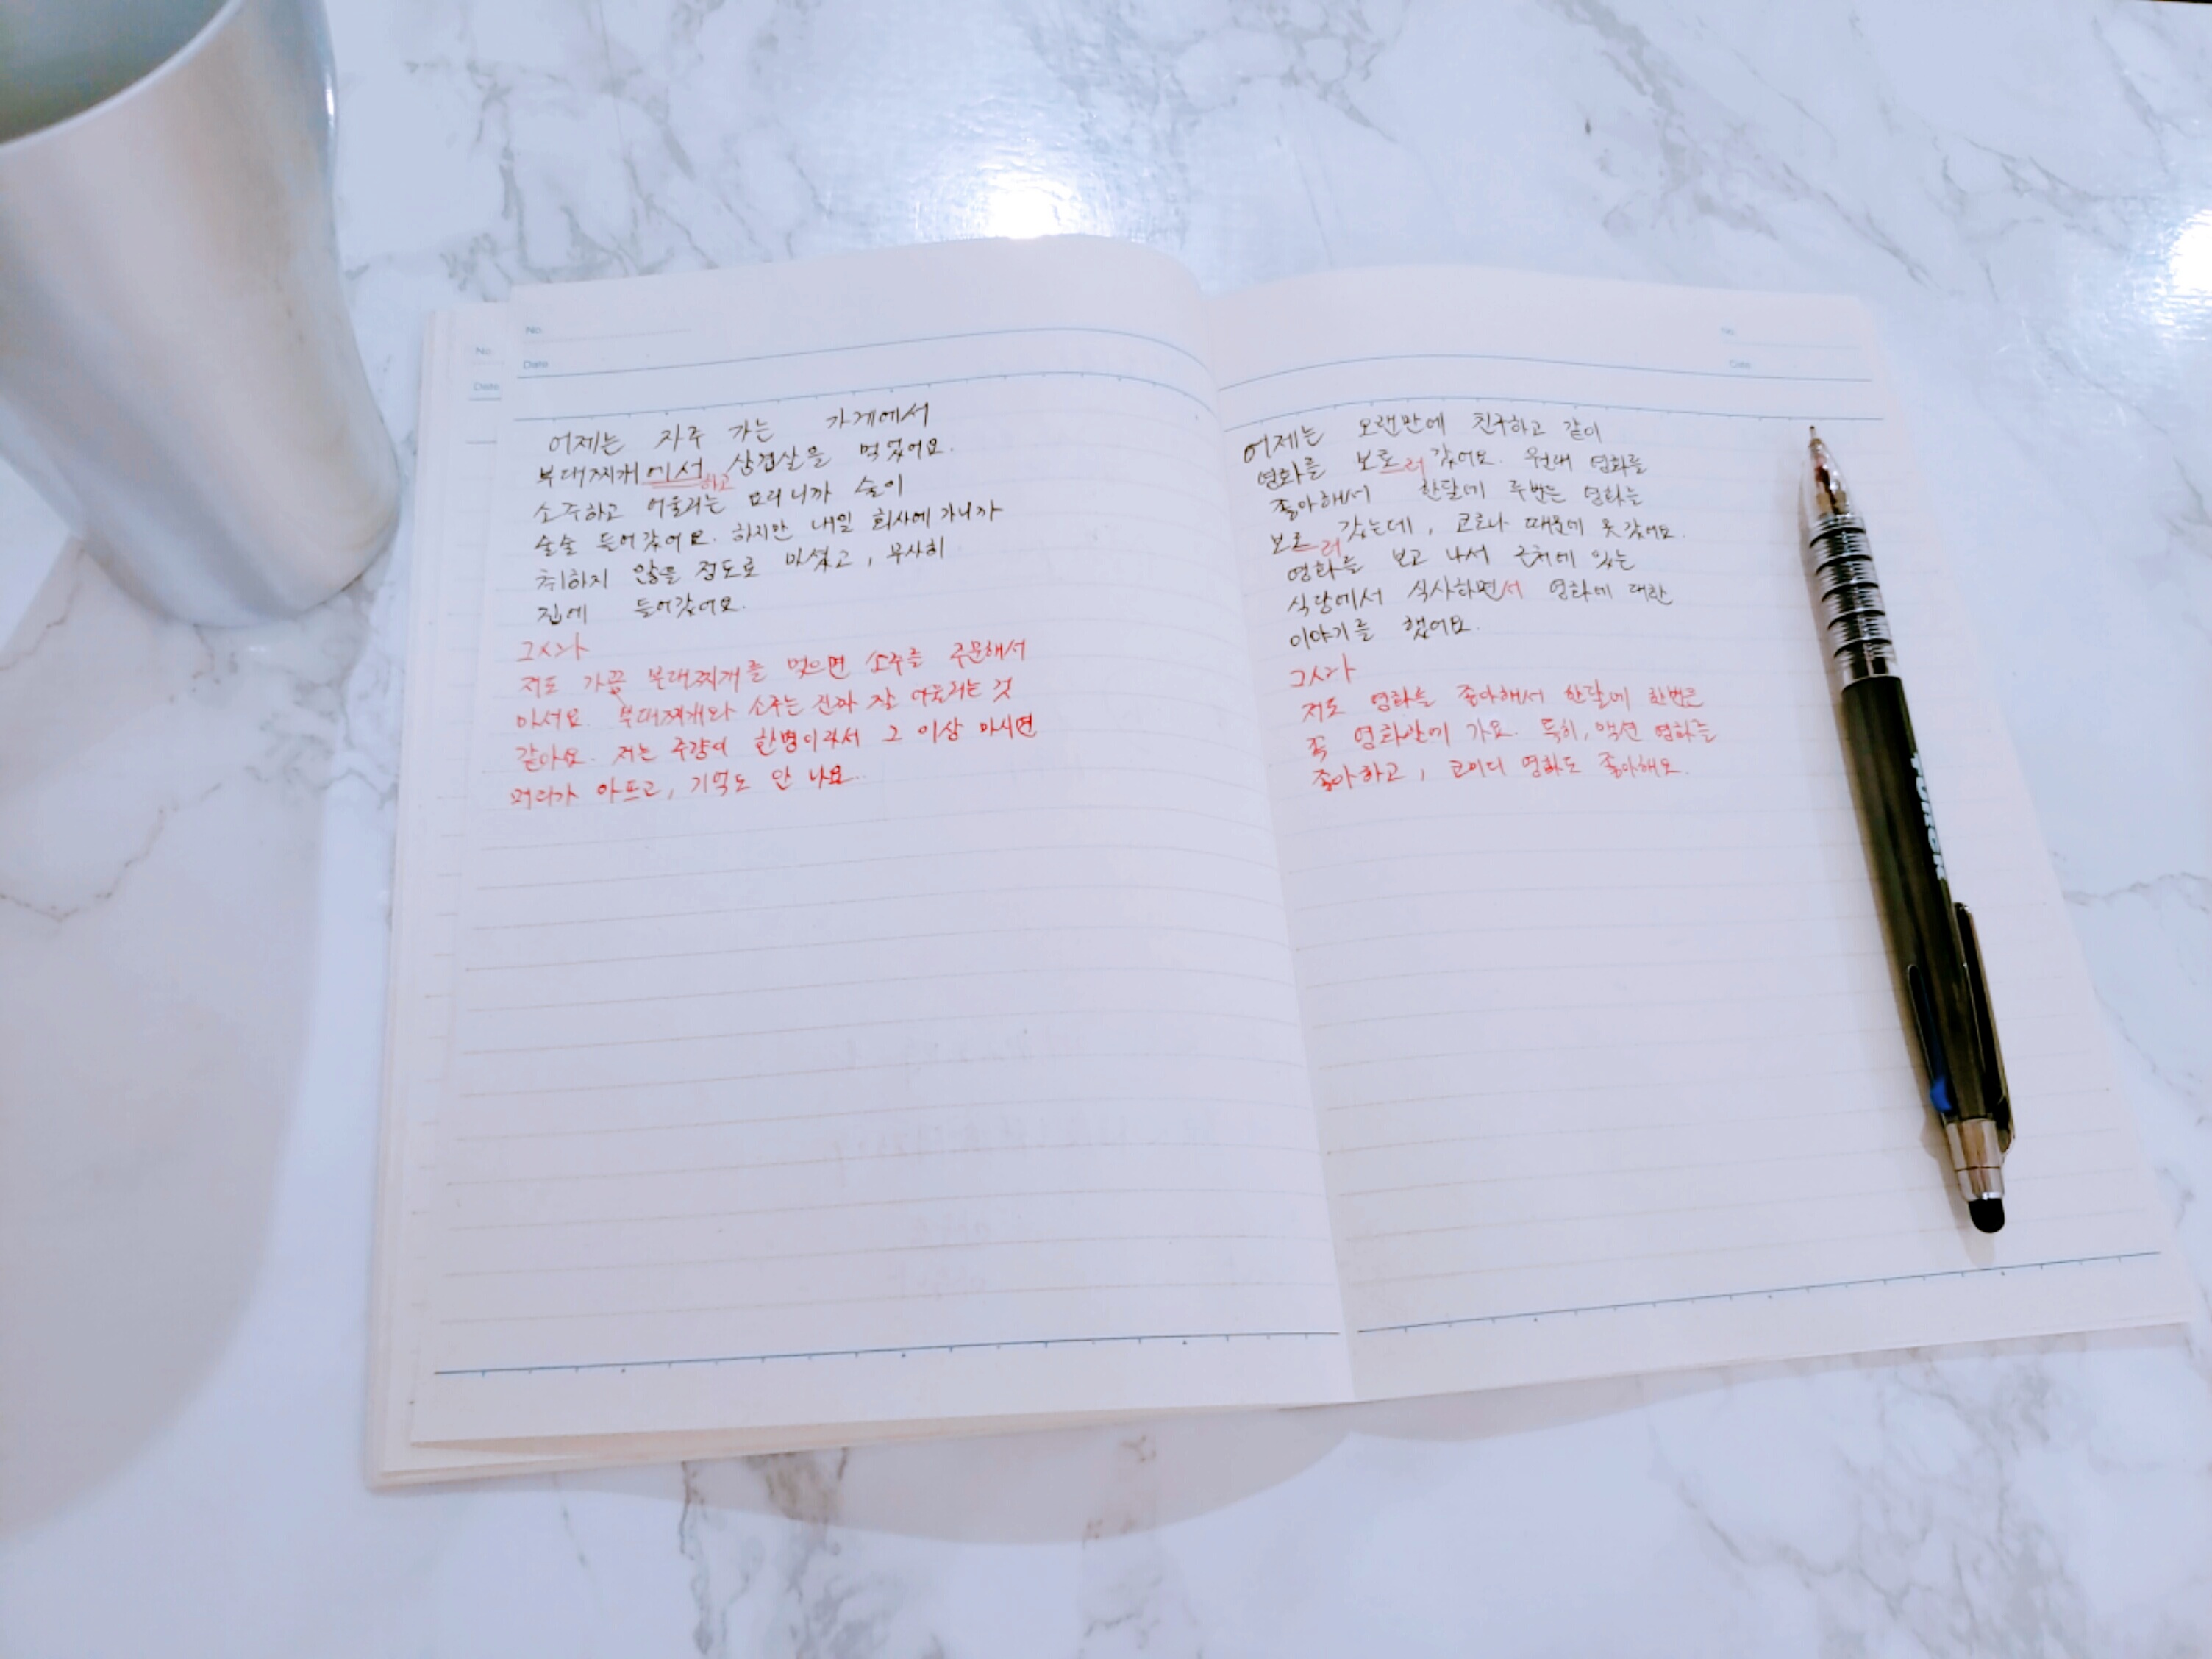 No.
Date
No.
Date
어제는 자주 가는 가게에서
부대찌개에서 삼겹살을 먹었어요.
하고
소주하고 어울리는 요리니까 술이
술술 들어갔어요. 하지만 내일 회사에 가니까
취하지 않을 정도로 마셨고, 무사히
집에 들어갔어요.
저도 가끔 부대찌개를 먹으면 소주를 주문해서
마셔요. 부대찌개와 소주는 진짜 잘 어울리는 것
같아요. 저는 주량이 한병이라서 그 이상 마시면
머리가 아프고, 기억도 안 나요..
No.
Date
어제는 오랜만에 친구하고 같이
영화를 보로러 갔어요. 원래 영화를
좋아해서 한달에 두번은 영화는
보로러 갔는데, 코로나 때문에 못 갔어요.
영화를 보고 나서 근처에 있는
식당에서 식사하면서 영화에 대한
이야기를 했어요.
저도 영화를 좋아해서 한달에 한번은
꼭 영화관에 가요. 특히, 액션 영화를
좋아하고, 코미디 영화도 좋아해요.